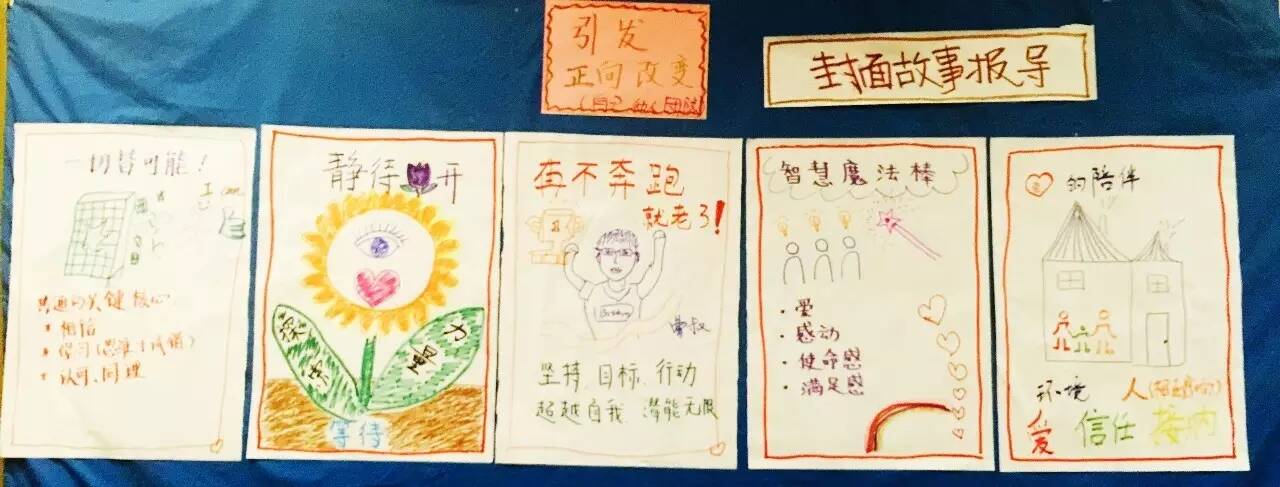 引发
正向改变
封面故事报导
一切皆可能!
I can
共通的关键核心
相信
学习(思维
认可、同理
静待
开
等待
再不奔跑
就老了!
坚持、目标、行动
超越自我 潜能无限
智慧魔法棒
· 爱
· 感动
· 使命感
· 满足感
的陪伴
环境 人
爱 信任 接纳